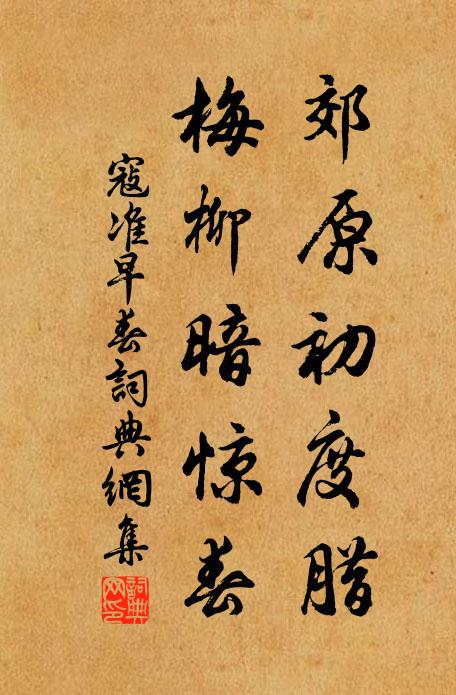 郊原初度腊
梅柳暗惊春
寇准早春詞典網集
詞典
网印